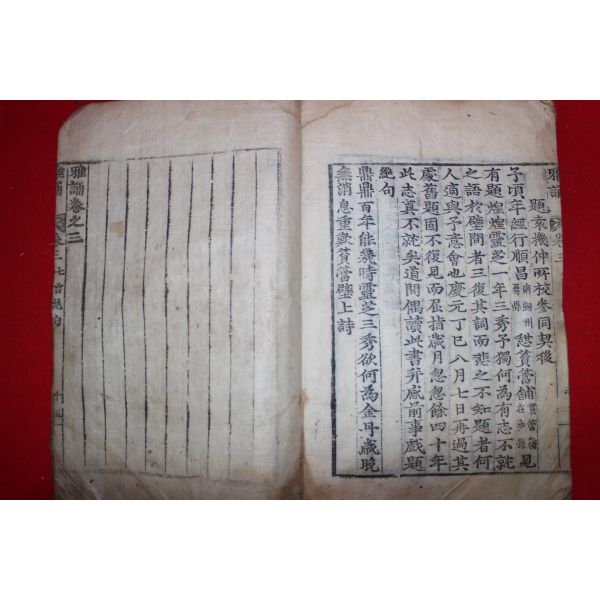 雅誦 卷三
題袁機仲所校參同契後
予頃年經行順昌南劍州屬縣憩篔簹鋪篔簹鋪在沙縣見
有題煌煌靈芝一年三秀予獨何為有志不就
之語於壁間者三復其詞而悲之不知題者何
人適與予意會也慶元丁巳八月七日再過其
處舊題固不復見而屈指歲月忽忽餘四十年
此志真不就矣道間偶讀此書并感前事戲題
絶句
鼎鼎百年能幾時靈芝三秀欲何為金丹歲晚
無消息重歎篔簹壁上詩
雅誦卷之三
雅誦 卷三 七言絶句